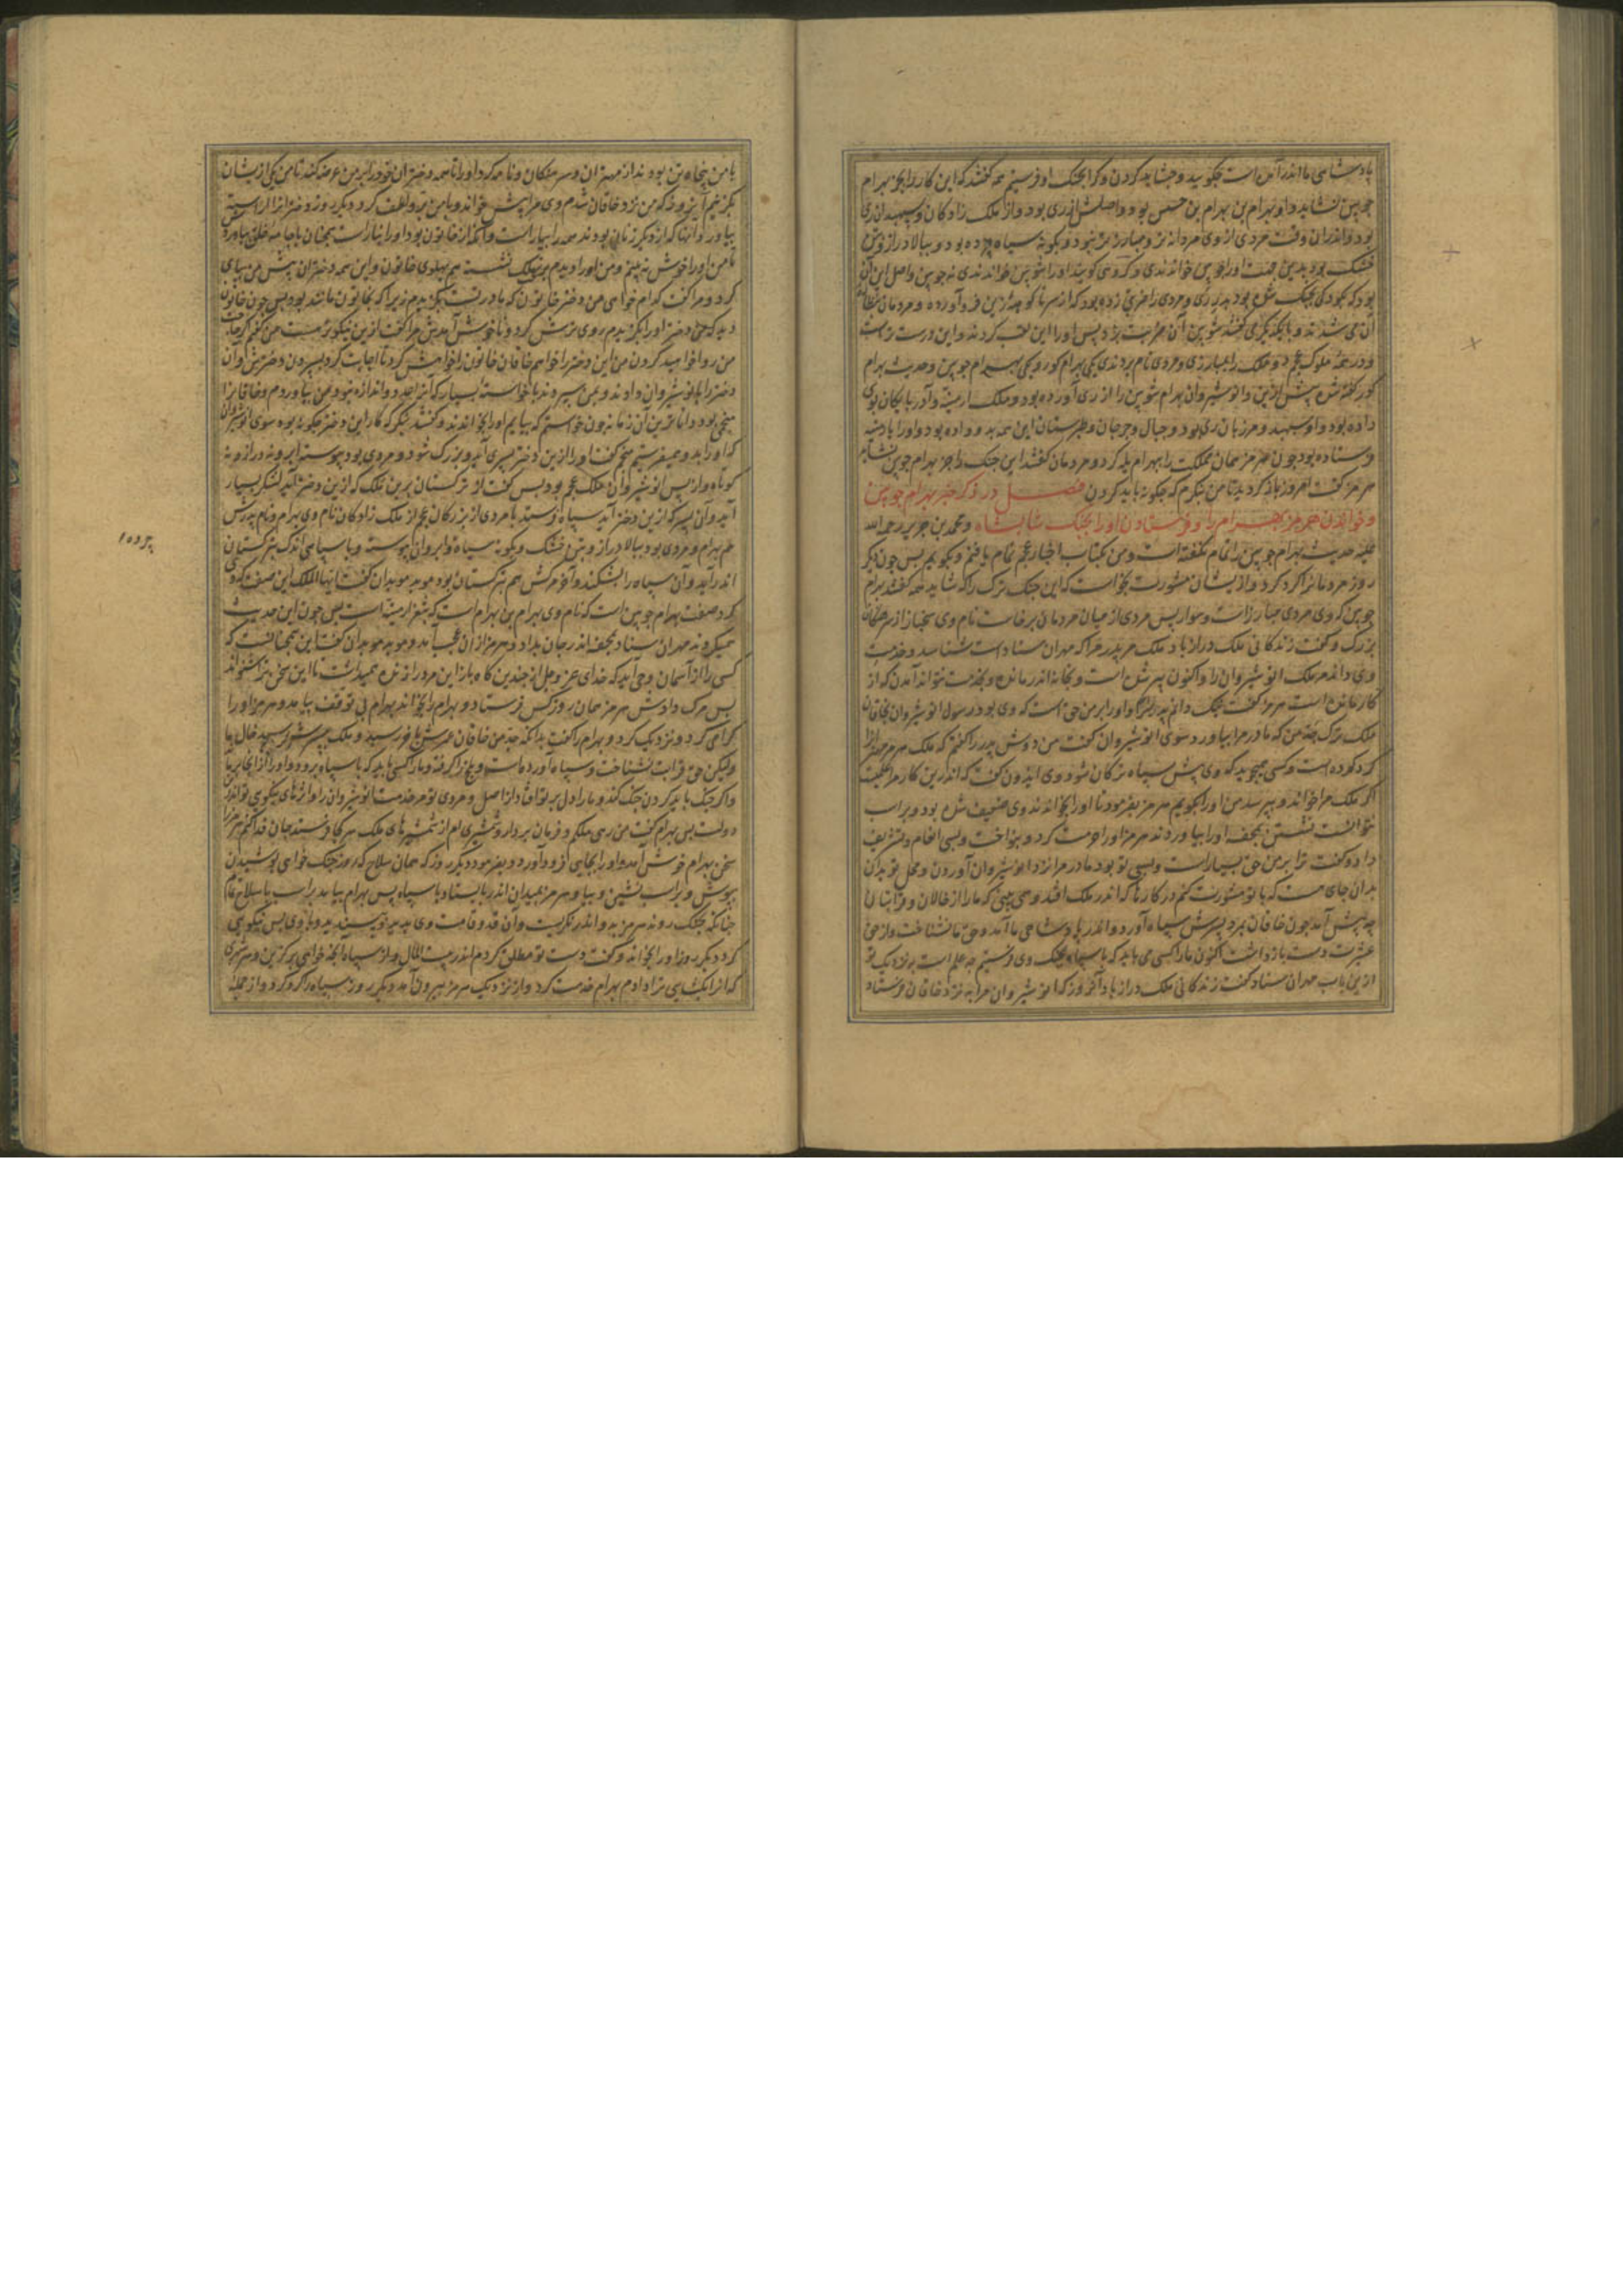 پادشاهی ما اندر آمده است چکوید و چشاید کردن و کرا بجنک او فرستیم همه کفتند که این کار را بجز بهرام
چوبین نشاید و او بهرام بن بهرام بن بود و اصلش از ری بود و از ملک زادکان و سپهبدان ری
بود و اندران وقت مردی از وی مردانه تر و مبارز تر نبود و بکونه سیاه چرده بود و ببالا دراز و بتن
خشک بود بدین صفت او را چوبین خواندندی و کروهی کویند او را شوبین خواندندی نه چوبین و اصل این آن
بود که بکودکی بجنک شده بود
آن می شدند و با یکدیگر می کفتند شوبین آن ضربت بزد پس او را این لقب کردند و این درست تر است
و در همه ملوک عجم دو ملک را بمبارزی و مردی نام بردندی یکی بهرام کور و یکی بهرام چوبین و حدیث بهرام
کور کفته شد پیش ازین و انوشیروان بهرام شوبین را از ری آورده بود و ملک ارمنیه و آذربایکان بوی
داده بود و او سپهبد و مرزبان ری بود و جبال و جرجان و طبرستان این همه بدو داده بود و او را
فرستاده بود چون هرمز همان مملکت را بهرام یله کرد و مردمان کفتند این جنک را جز بهرام چوبین نشاید
هرمز کفت امروز باز کردید تا من بنکرم که چکونه باید کردن فصل در ذکر خبر بهرام چوبین
و خواندن هرمز بهرام را و فرستادن او را بجنک شابشاه و محمد بن جریر رحمه الله
علیه حدیث بهرام چوبین را تمام نکفته است و من بکتاب اخبار عجم تمام یافتم و بکویم پس چون دیکر
روز مردمانرا کرد کرد و از یشان مشورت بخواست که این جنک ترک را که شاید همه کفتند بهرام
چوبین که وی مردی مبارز است و سوار پس مردی از میان مردمان برخاست نام وی از سرهنکان
بزرک و کفت زندکانی ملک دراز باد ملک مر پدر مرا که مهران ستاد است شناسد و خدمت
وی داند مر ملک انوشیروان را و اکنون پیر شده است و بخانه اندر مانده و بخدمت نتواند آمدن که از
کار مانده است هرمز کفت نیک دانم پدر ترا و او را بر من حق است که وی بود رسول انوشیروان بخاقان
ملک ترک جد من که مادر مرا بیاورد سوی انوشیروان کفت من دوش پدر را کفتم که ملک هرمز
کرد کرده است و کسی همی جوید که وی پیش سپاه ترکان شود وی ایدون کفت که اندرین کار مرا علمیست
اکر ملک مرا خواند و بپرسد من او را بکویم هرمز بفرمود تا او را بخواندند وی ضعیف شده بود و بر اسب
نتوانست نشستن بمحفه او را بیاوردند هرمز او را حرمت کرد و بنواخت و بسی انعام و تشریف
داد و کفت ترا بر من حق بسیار است و لیسبی تو بود مادر مرا نزد انوشیروان آوردن و محل تو بدان
بدان جای است که با تو مشورت کنم در کارها که اندر ملک افتد و همی بینی که ما را از خالان و قرابتان ما
چه پیش آمد چون خاقان بمرد پسرش سپاه آورد و اندر پادشاهی ما آمد و حق ما نشناخت و از حق
عشیرت دست باز داشت اکنون ما را کسی می باید که با سپاه بجنک وی فرستیم چه علم است به نزدیک تو
ازین باب مهران ستاد کفت زندکانی ملک دراز باد آنروز که انوشیروان مرا به نزد خاقان فرستاد
با من پنجاه تن بودند از مهتران و سرهنکان و نامه کرد او را تا همه دختران خود را بر من عرضه کند تا من یکی ازیشان
بکزینم آنروز که من نزد خاقان شدم وی مرا پیش خواند و با من لطف کرد و دیکر روز دختران را آراسته
بیاورد و آنها که از دیکر زنان بودند همه را بیاراست و آنکه از خاتون بود او را نیاراست همچنان با جامه خلق بیاورد
تا من او را خوش نه بینم و من او را دیدم بر تخت نشسته هم پهلوی خاتون و این همه دختران پیش من بپای
کرد و مرا کفت کدام خواهی من دختر خاتون که بادر نشست بکزیدم زیرا که بخاتون مانند بود پس چون خاتون
دید که من دختر او را بکزیدم روی ترش کرد و ناخوش آمدش مرا کفت ازین نیکوتر هست من کفتم اکر حاجت
من روا خواهید کردن من این دختر را خواهم خاقان خاتون را خواهش کرد تا اجابت کرد بسپردن دخترش و آن
دختر را بانوشیروان دادند و بمن سپردند با خواسته بسیار که آنرا حد و اندازه نبود و من بیاوردم و خاقانرا
منجمی بود داناترین آن زمانه چون خواستم که بیایم او را بخواندند و کفتند بنکر که کار این دختر چکونه بود سوی انوشیروان
که او را بدو همی فرستیم منجم کفت او را ازین دختر پسری آید و بزرک شود و مردی بود پیوسته ابرو نه دراز و نه
کوتاه و از پس انوشیروان ملک عجم بود پس کفت از ترکستان برین ملک که ازین دختر آید لشکر بسیار
آید و آن پسر که ازین دختر آید سپاه فرستد با مردی از بزرکان عجم از ملک زادکان نام وی بهرام و نام پدرش
هم بهرام و مردی بود ببالا دراز و بتن خشک و بکونه سیاه و ابروان پیوسته و با سپاهی اندک بترکستان
اندر آید و آن سپاه را بشکند و آخر مرکش هم بترکستان بود موبد موبدان کفت ایها الملک این صفت که وی
کرد صفت بهرام چوبین است که نام وی بهرام بن بهرام است که بثغر ارمنیه است پس چون این حدیث
همیکردند مهران ستاد بمحفه اندر جان بداد و هرمز از آن عجب آمد و موبد موبدان کفتا این همچنانست که
کسی را از آسمان وحی آید که خدای عز و جل از چندین کاه باز این مرد را زنده همیداشت تا این سخن بتو شنواند
پس مرک دادش هرمز همان روز کس فرستاد و بهرام را بخواند بهرام بی توقف بیامد و هرمز او را
کرامی کرد و نزدیک کرد و بهرام را کفت بدانکه جد من خاقان عمرش بآخر رسید و ملک به پسرش رسید خال ما
ولیکن حق قرابت نشناخت و سپاه آورده است و بلخ را کرفته و ما را کسی باید که با سپاه برود و او را از آنجا براند
و اکر جنک باید کردن جنک کند و ما را دل بر تو افتاد از اصل و مردی تو مر خدمت انوشیروان را و اثرهای نیکوی تو اندر
دولت پس بهرام کفت من رهی ملکم و فرمان بردار و شمشیری ام از شمشیرهای ملک هر کجا فرستد جان فدا کنم هرمز را
سخن بهرام خوش آمد و او را بجایی فرود آورد و بفرمود دیکر روز که همان سلاح که روز جنک خواهی پوشیدن
بپوش و بر اسب نشین و بیا و هرمز بمیدان اندر بایستاد با سپاه پس بهرام بیامد بر اسب با سلاح تمام
چنانکه بجنک روند هرمز بدو اندر نکریست و آن قد و قامت وی بدید و بپسندید و با وی بس نیکویی
کرد دیکر روز او را بخواند و کفت دست تو مطلق کردم اندر بیت المال و از سپاه آنچه خواهی برکزین و هر شهری
که آنرا بکشایی ترا دادم بهرام خدمت کرد و از نزدیک هرمز بیرون آمد دیکر روز سپاه را کرد کرد و از جمله